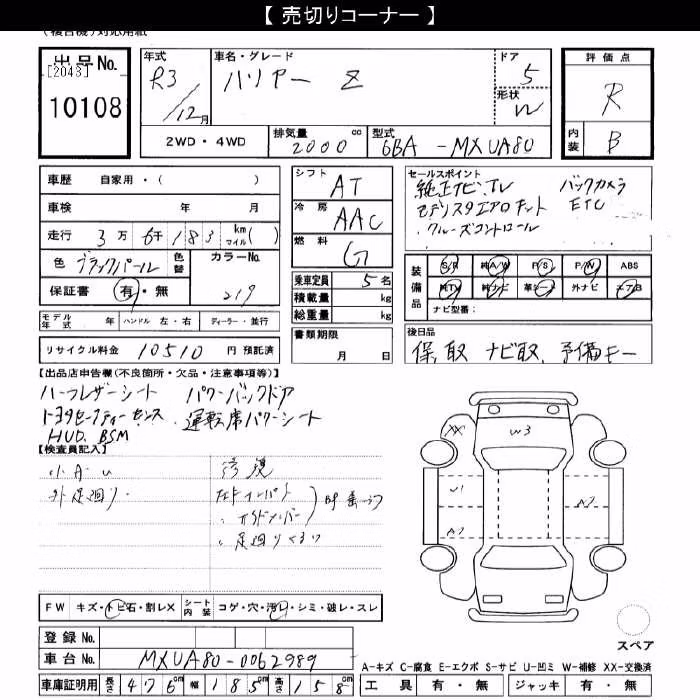 【 売切りコーナー 】
出品No.
[2043]
10108
年式
R3
/12月
車名・グレード
ハリアー Z
ドア
5
形状
W
評価点
R
内装
B
2WD・4WD
排気量
2000 cc
型式
6BA -MXUA80
車歴 自家用・( )
車検 年 月
走行 3万 6千 183 km マイル( )
色 ブラックパール 色替
カラーNo.
219
保証書 有・無
モデル年式 年 ハンドル 左・右 ディーラー・並行
リサイクル料金 10510 円 預託済
シフト
AT
冷房
AAC
燃料
G
乗車定員 5名
積載量 kg
総重量 kg
書類期限
月 日
セールスポイント
純正ナビ.TV バックカメラ
モデリスタエアロキット ETC
クルーズコントロール
装備品
S/R 純A/W P/S P/W ABS
純TV 純ナビ 革シート 外ナビ エアB
ナビ型番:
後日品
保、取 ナビ取、予備キー
【出品店申告欄(不良箇所・欠品・注意事項等)】
ハーフレザーシート パワーバックドア
トヨタセーフティーセンス 運転席パワーシート
HUD. BSM
【検査員記入】
小A・U
外足廻り・
修復
足廻り
XX
W3
W1
A2
FW キズ・トビ石・割レX シート内装 コゲ・穴・汚レ・シミ・破レ・スレ
登録No.
車台No. MXUA80-0062989
車庫証明用 長さ 476cm 幅 185cm 高さ 158cm
スペア
A-キズ C-腐食 E-エクボ S-サビ U-凹ミ W-補修 XX-交換済
工具 有・無 ジャッキ 有・無